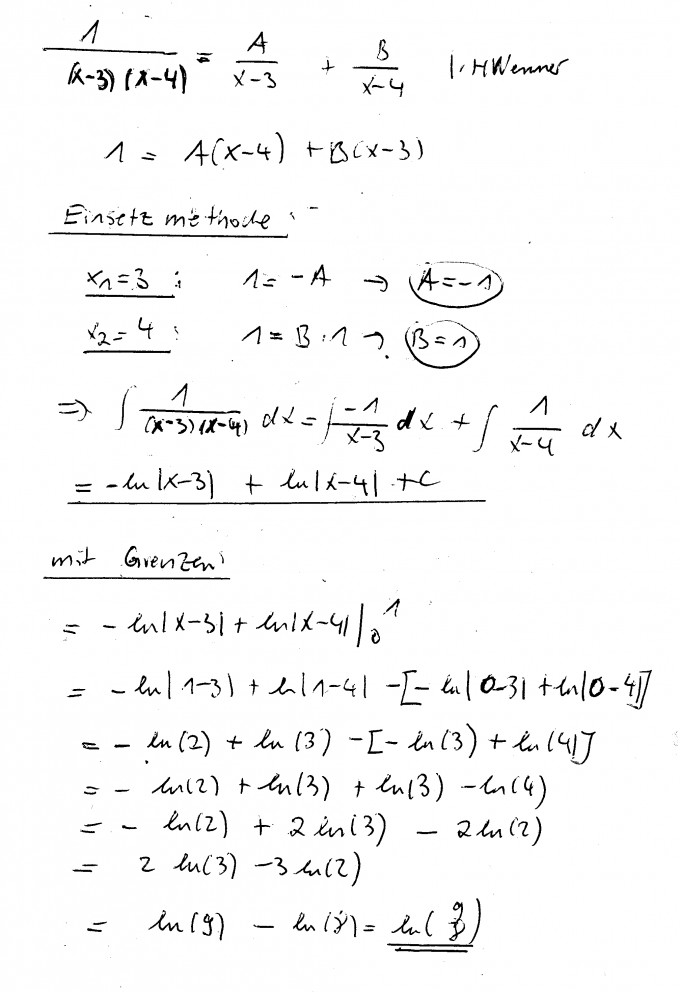 1/((x-3)(x-4)) = A/(x-3) + B/(x-4) |·HNenner
1 = A(x-4) + B(x-3)
Einsetzmethode:
x₁=3 : 1 = -A → A=-1
x₂=4 : 1 = B·1 → B=1
⇒ ∫ 1/((x-3)(x-4)) dx = ∫ -1/(x-3) dx + ∫ 1/(x-4) dx
= -ln|x-3| + ln|x-4| + C
mit Grenzen:
= - ln|x-3| + ln|x-4| |₀¹
= - ln|1-3| + ln|1-4| -[- ln|0-3| + ln|0-4|]
= - ln(2) + ln(3) -[- ln(3) + ln(4)]
= - ln(2) + ln(3) + ln(3) - ln(4)
= - ln(2) + 2 ln(3) - 2 ln(2)
= 2 ln(3) - 3 ln(2)
= ln(9) - ln(8) = ln(9/8)